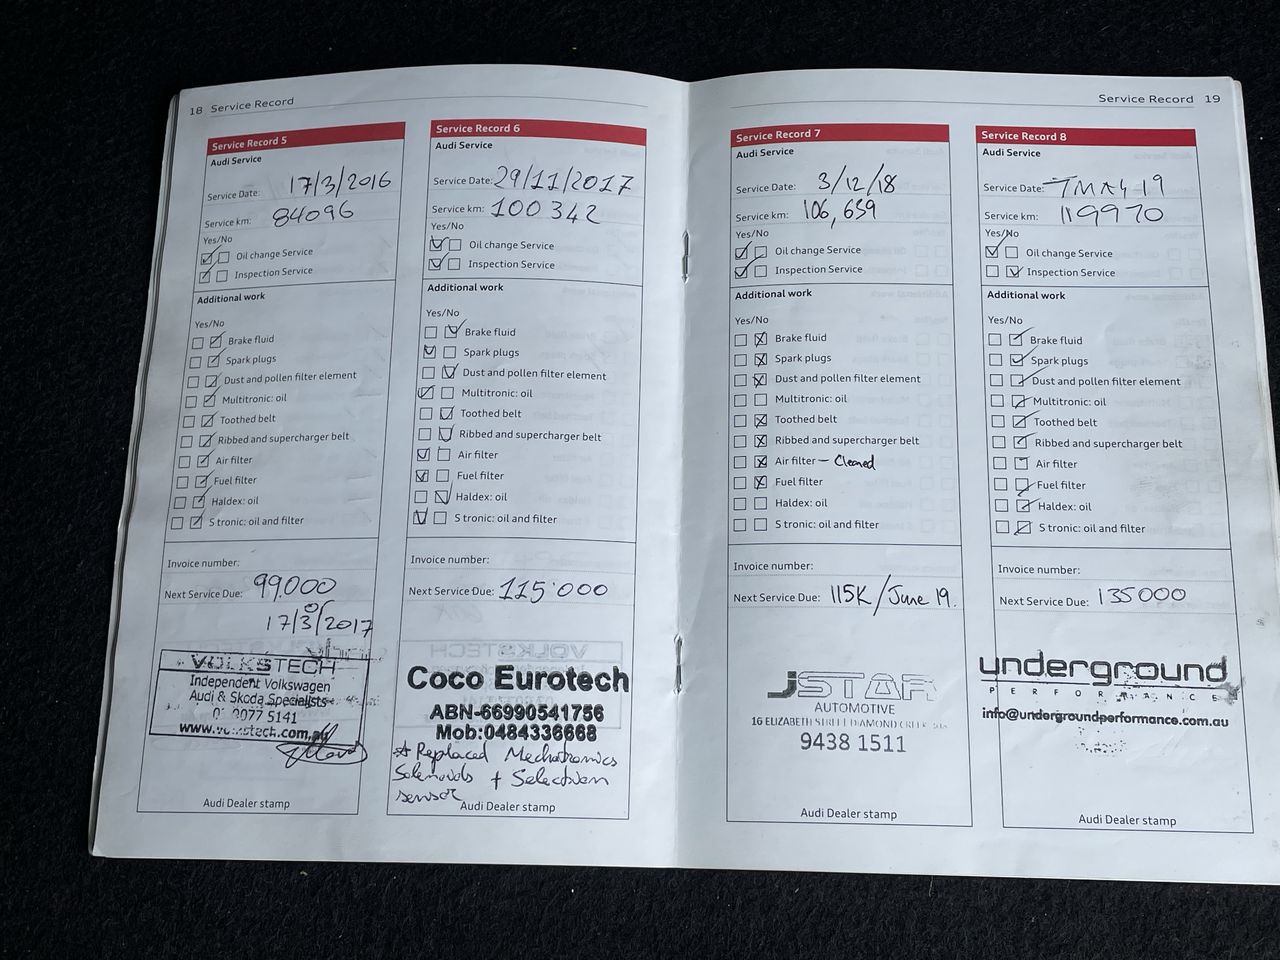 18 Service Record
Service Record 5
Audi Service
Service Date: 17/3/2016
Service km: 84096
Yes/No
Oil change Service
Inspection Service
Additional work
Yes/No
Brake fluid
Spark plugs
Dust and pollen filter element
Multitronic: oil
Toothed belt
Ribbed and supercharger belt
Air filter
Fuel filter
Haldex: oil
S tronic: oil and filter
Invoice number:
Next Service Due: 99000
17/3/2017
VOLKSTECH
Independent Volkswagen
Audi & Skoda Specialists
9077 5141
www.volkstech.com.au
Audi Dealer stamp
Service Record 6
Audi Service
Service Date: 29/11/2017
Service km: 100 342
Yes/No
Oil change Service
Inspection Service
Additional work
Yes/No
Brake fluid
Spark plugs
Dust and pollen filter element
Multitronic: oil
Toothed belt
Ribbed and supercharger belt
Air filter
Fuel filter
Haldex: oil
S tronic: oil and filter
Invoice number:
Next Service Due: 115'000
Coco Eurotech
ABN-66990541756
Mob:0484336668
* Replaced Mechatronics
Solenoids + Selection
sensor
Audi Dealer stamp
Service Record 19
Service Record 7
Audi Service
Service Date: 3/12/18
Service km: 106,659
Yes/No
Oil change Service
Inspection Service
Additional work
Yes/No
Brake fluid
Spark plugs
Dust and pollen filter element
Multitronic: oil
Toothed belt
Ribbed and supercharger belt
Air filter – Cleaned
Fuel filter
Haldex: oil
S tronic: oil and filter
Invoice number:
Next Service Due: 115K/June 19.
JSTAR
AUTOMOTIVE
16 ELIZABETH STREET DIAMOND CREEK
9438 1511
Audi Dealer stamp
Service Record 8
Audi Service
Service Date: 7MAY 19
Service km: 119970
Yes/No
Oil change Service
Inspection Service
Additional work
Yes/No
Brake fluid
Spark plugs
Dust and pollen filter element
Multitronic: oil
Toothed belt
Ribbed and supercharger belt
Air filter
Fuel filter
Haldex: oil
S tronic: oil and filter
Invoice number:
Next Service Due: 135000
underground
PERFORMANCE
info@undergroundperformance.com.au
Audi Dealer stamp